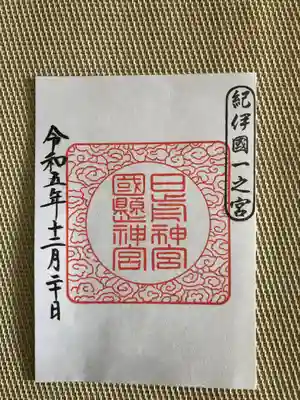 紀伊國一之宮
日前神宮
國懸神宮
令和五年十二月二十日